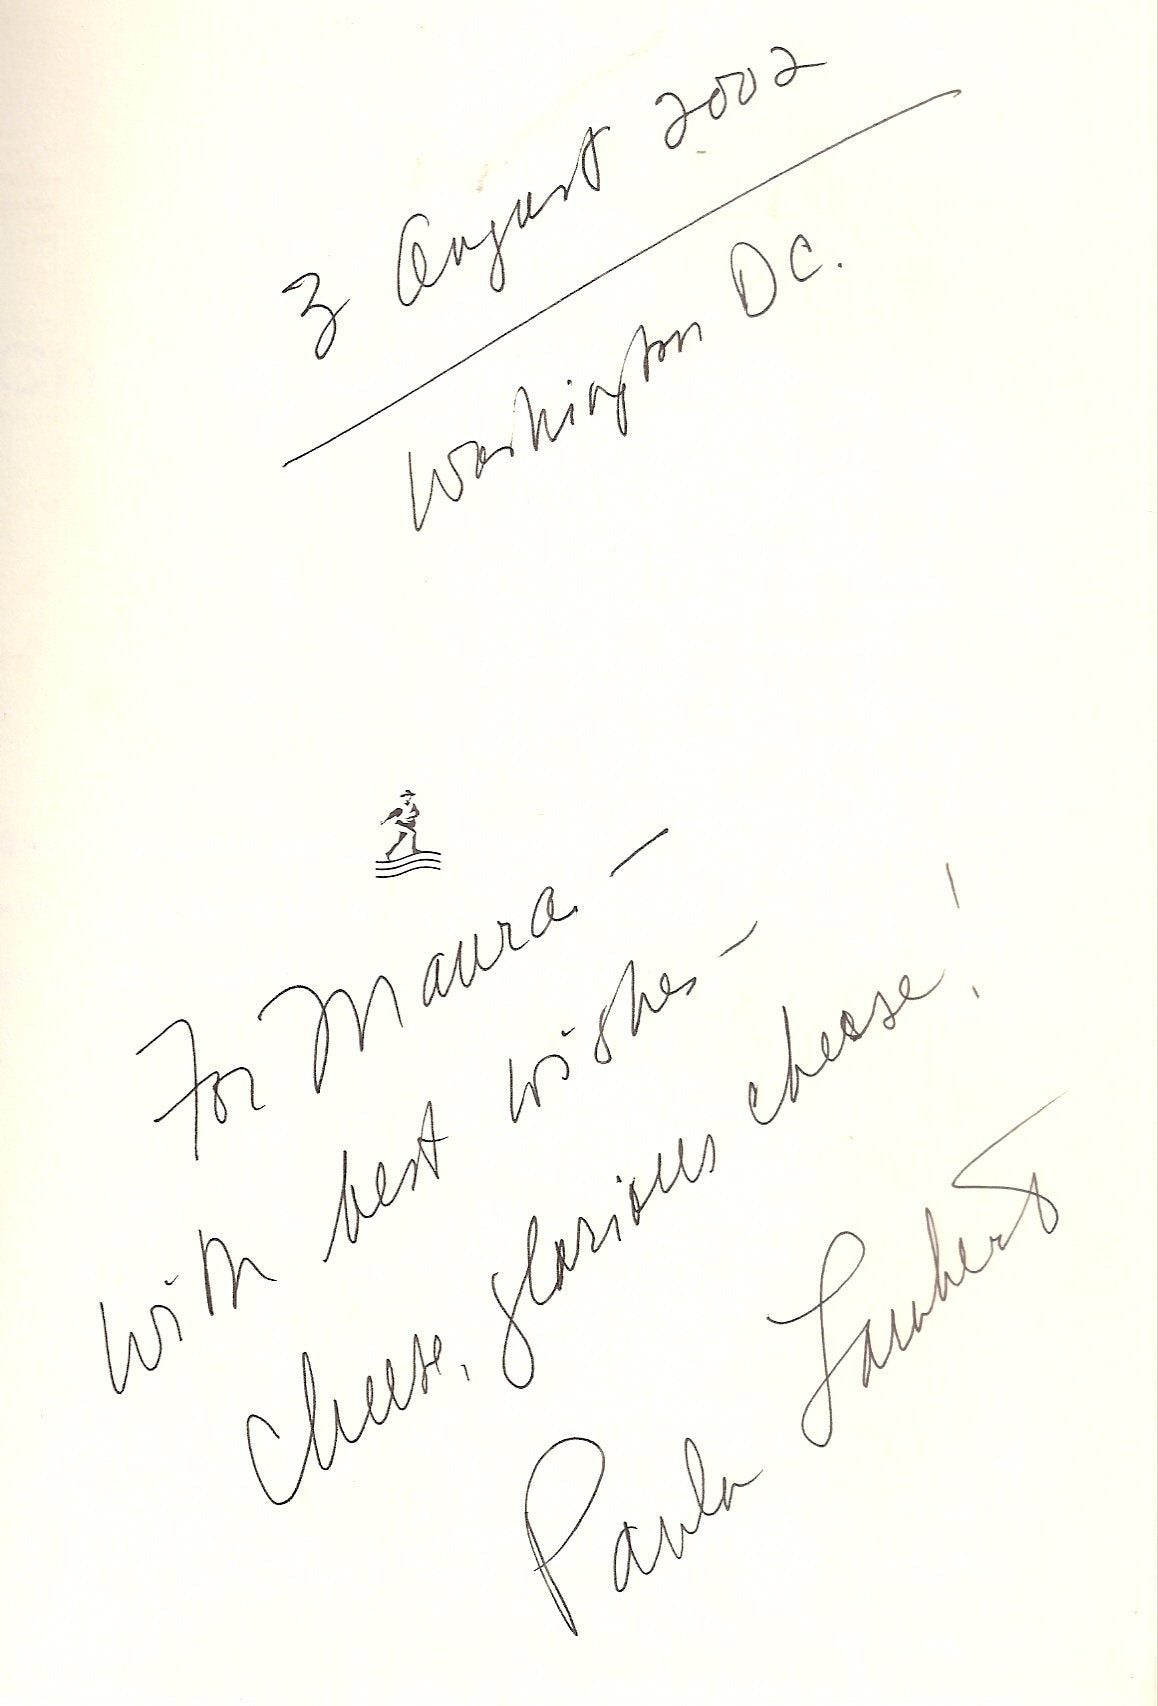 3 August 2002
Washington DC.
For Maura —
with best wishes —
Cheese, glorious cheese!
Paula Lambert